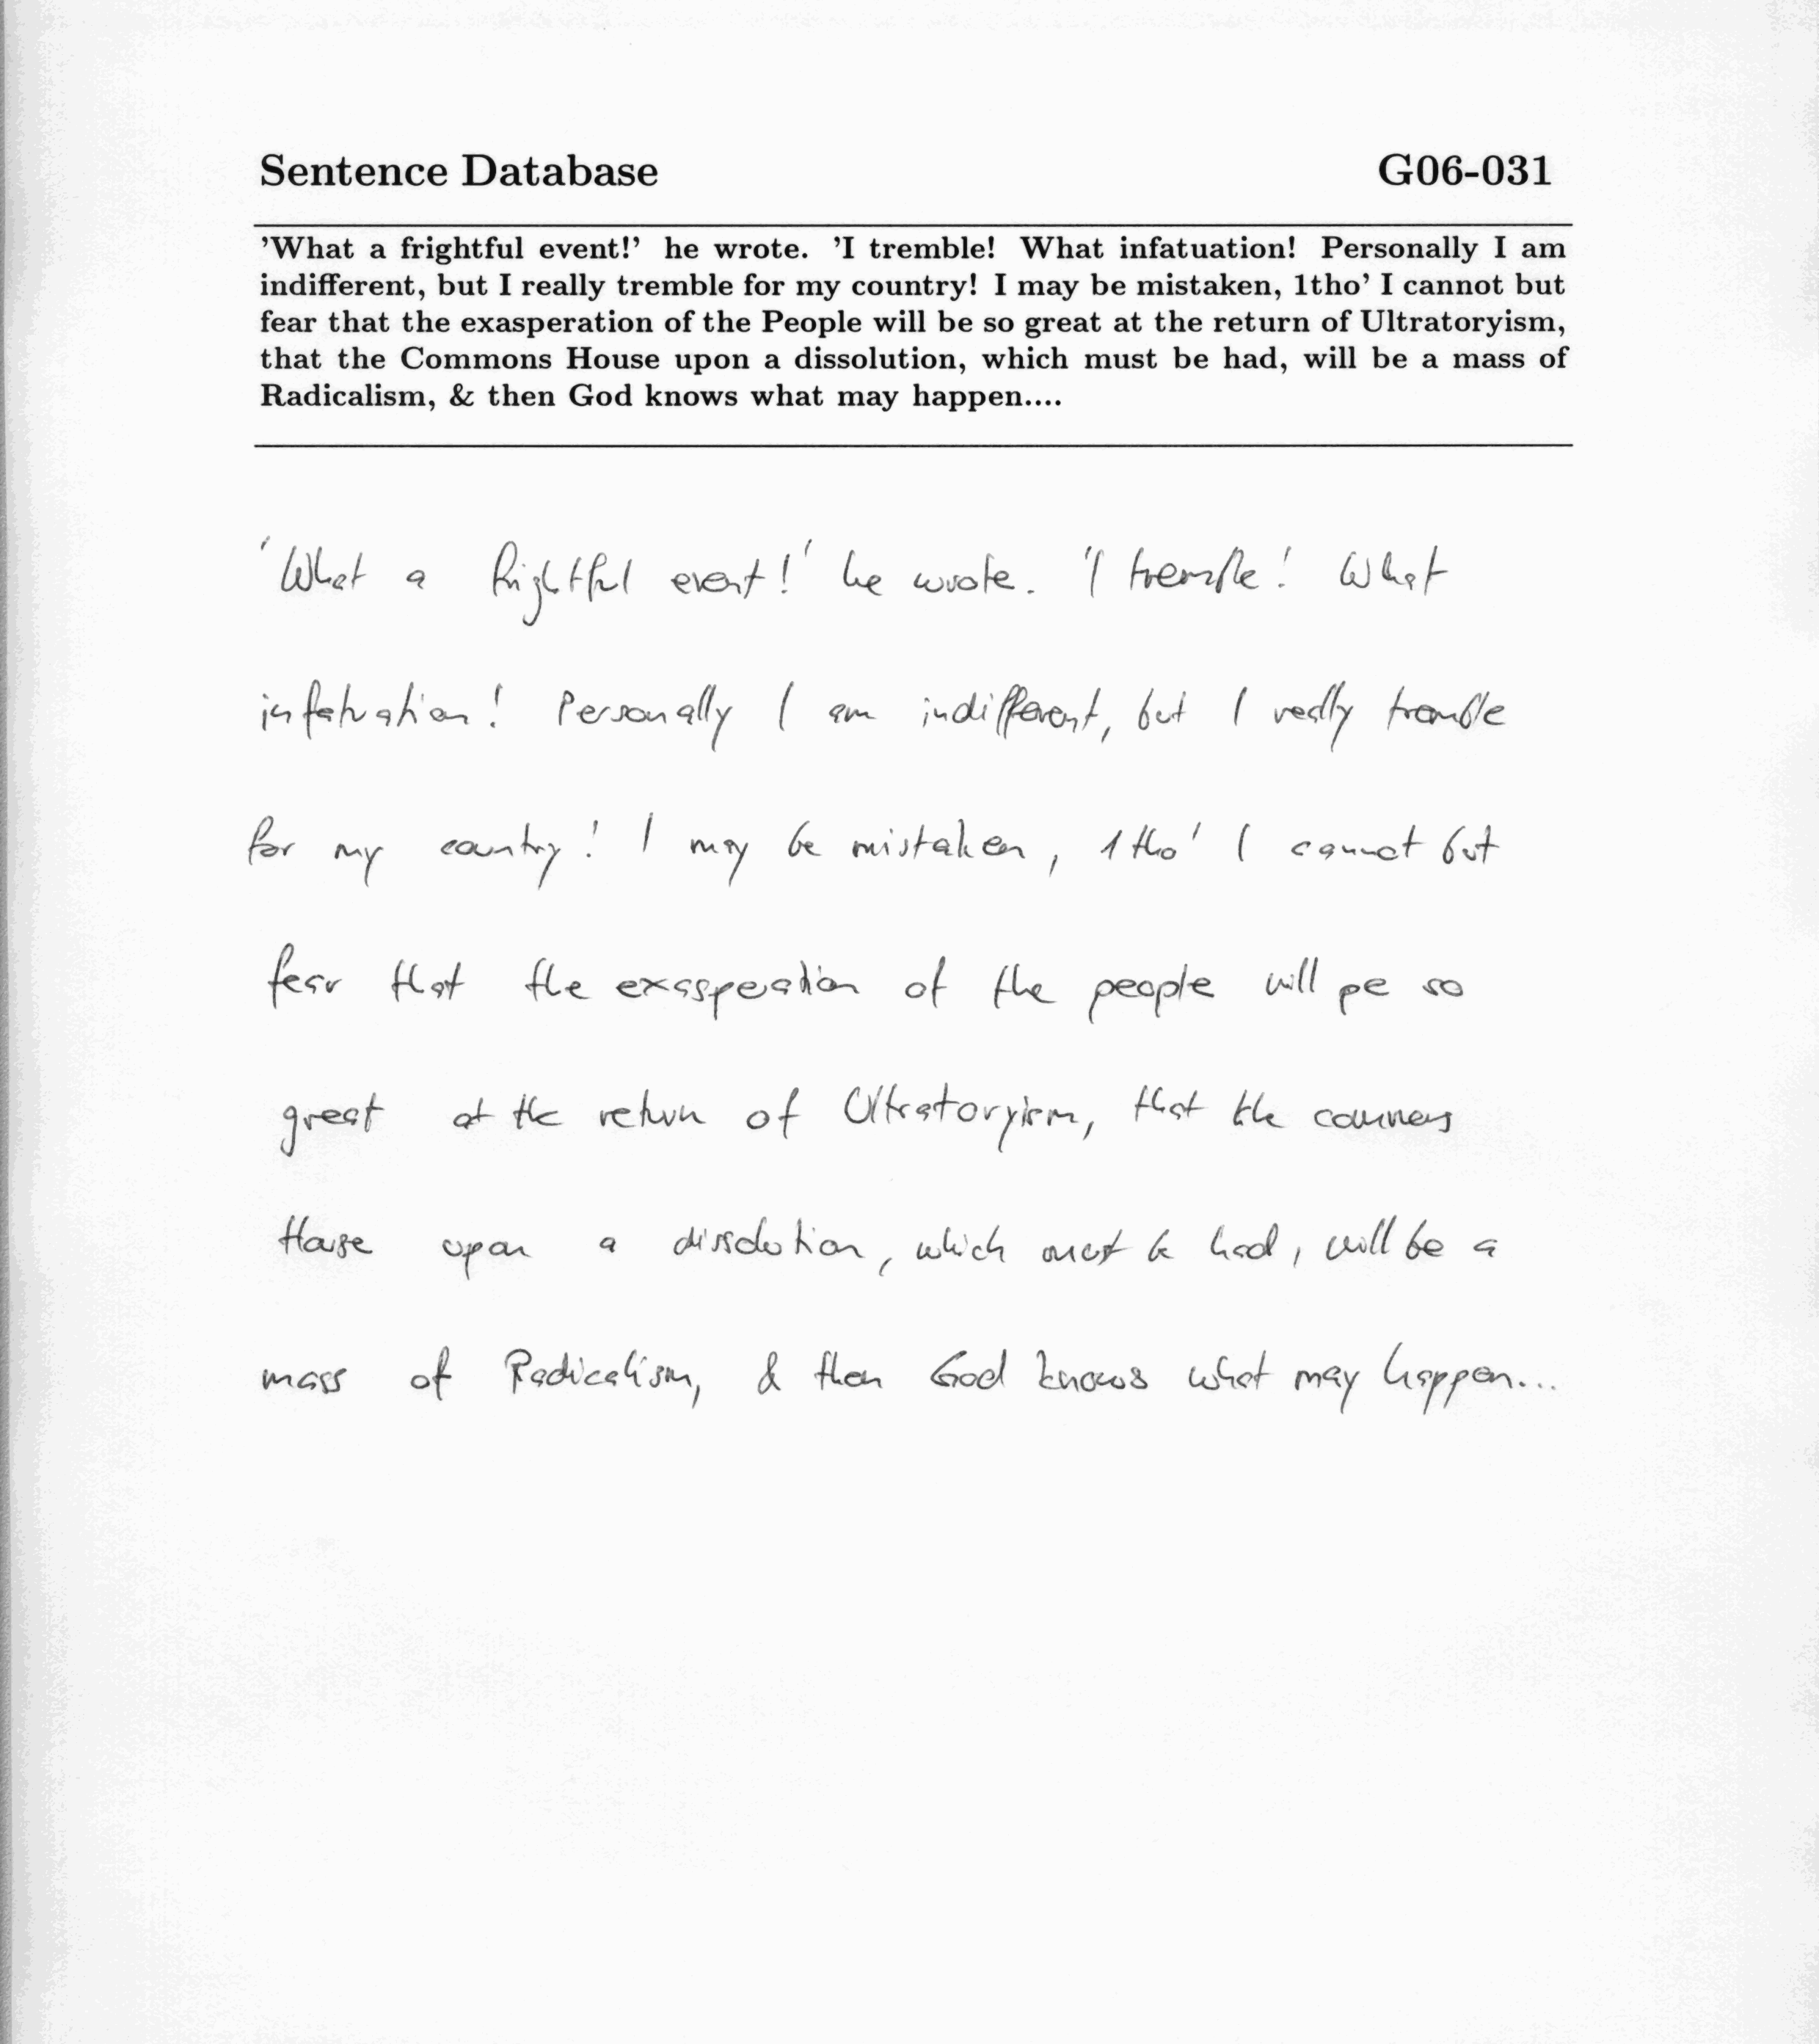 Sentence Database G06-031
'What a frightful event!' he wrote. 'I tremble! What infatuation! Personally I am
indifferent, but I really tremble for my country! I may be mistaken, 1tho' I cannot but
fear that the exasperation of the People will be so great at the return of Ultratoryism,
that the Commons House upon a dissolution, which must be had, will be a mass of
Radicalism, & then God knows what may happen....
'What a frightful event!' he wrote. 'I tremble! What
infatuation! Personally I am indifferent, but I really tremble
for my country! I may be mistaken, 1tho' I cannot but
fear that the exasperation of the people will pe so
great at the return of Ultratoryism, that the commons
House upon a dissolution, which must be had, will be a
mass of Radicalism, & then God knows what may happen...